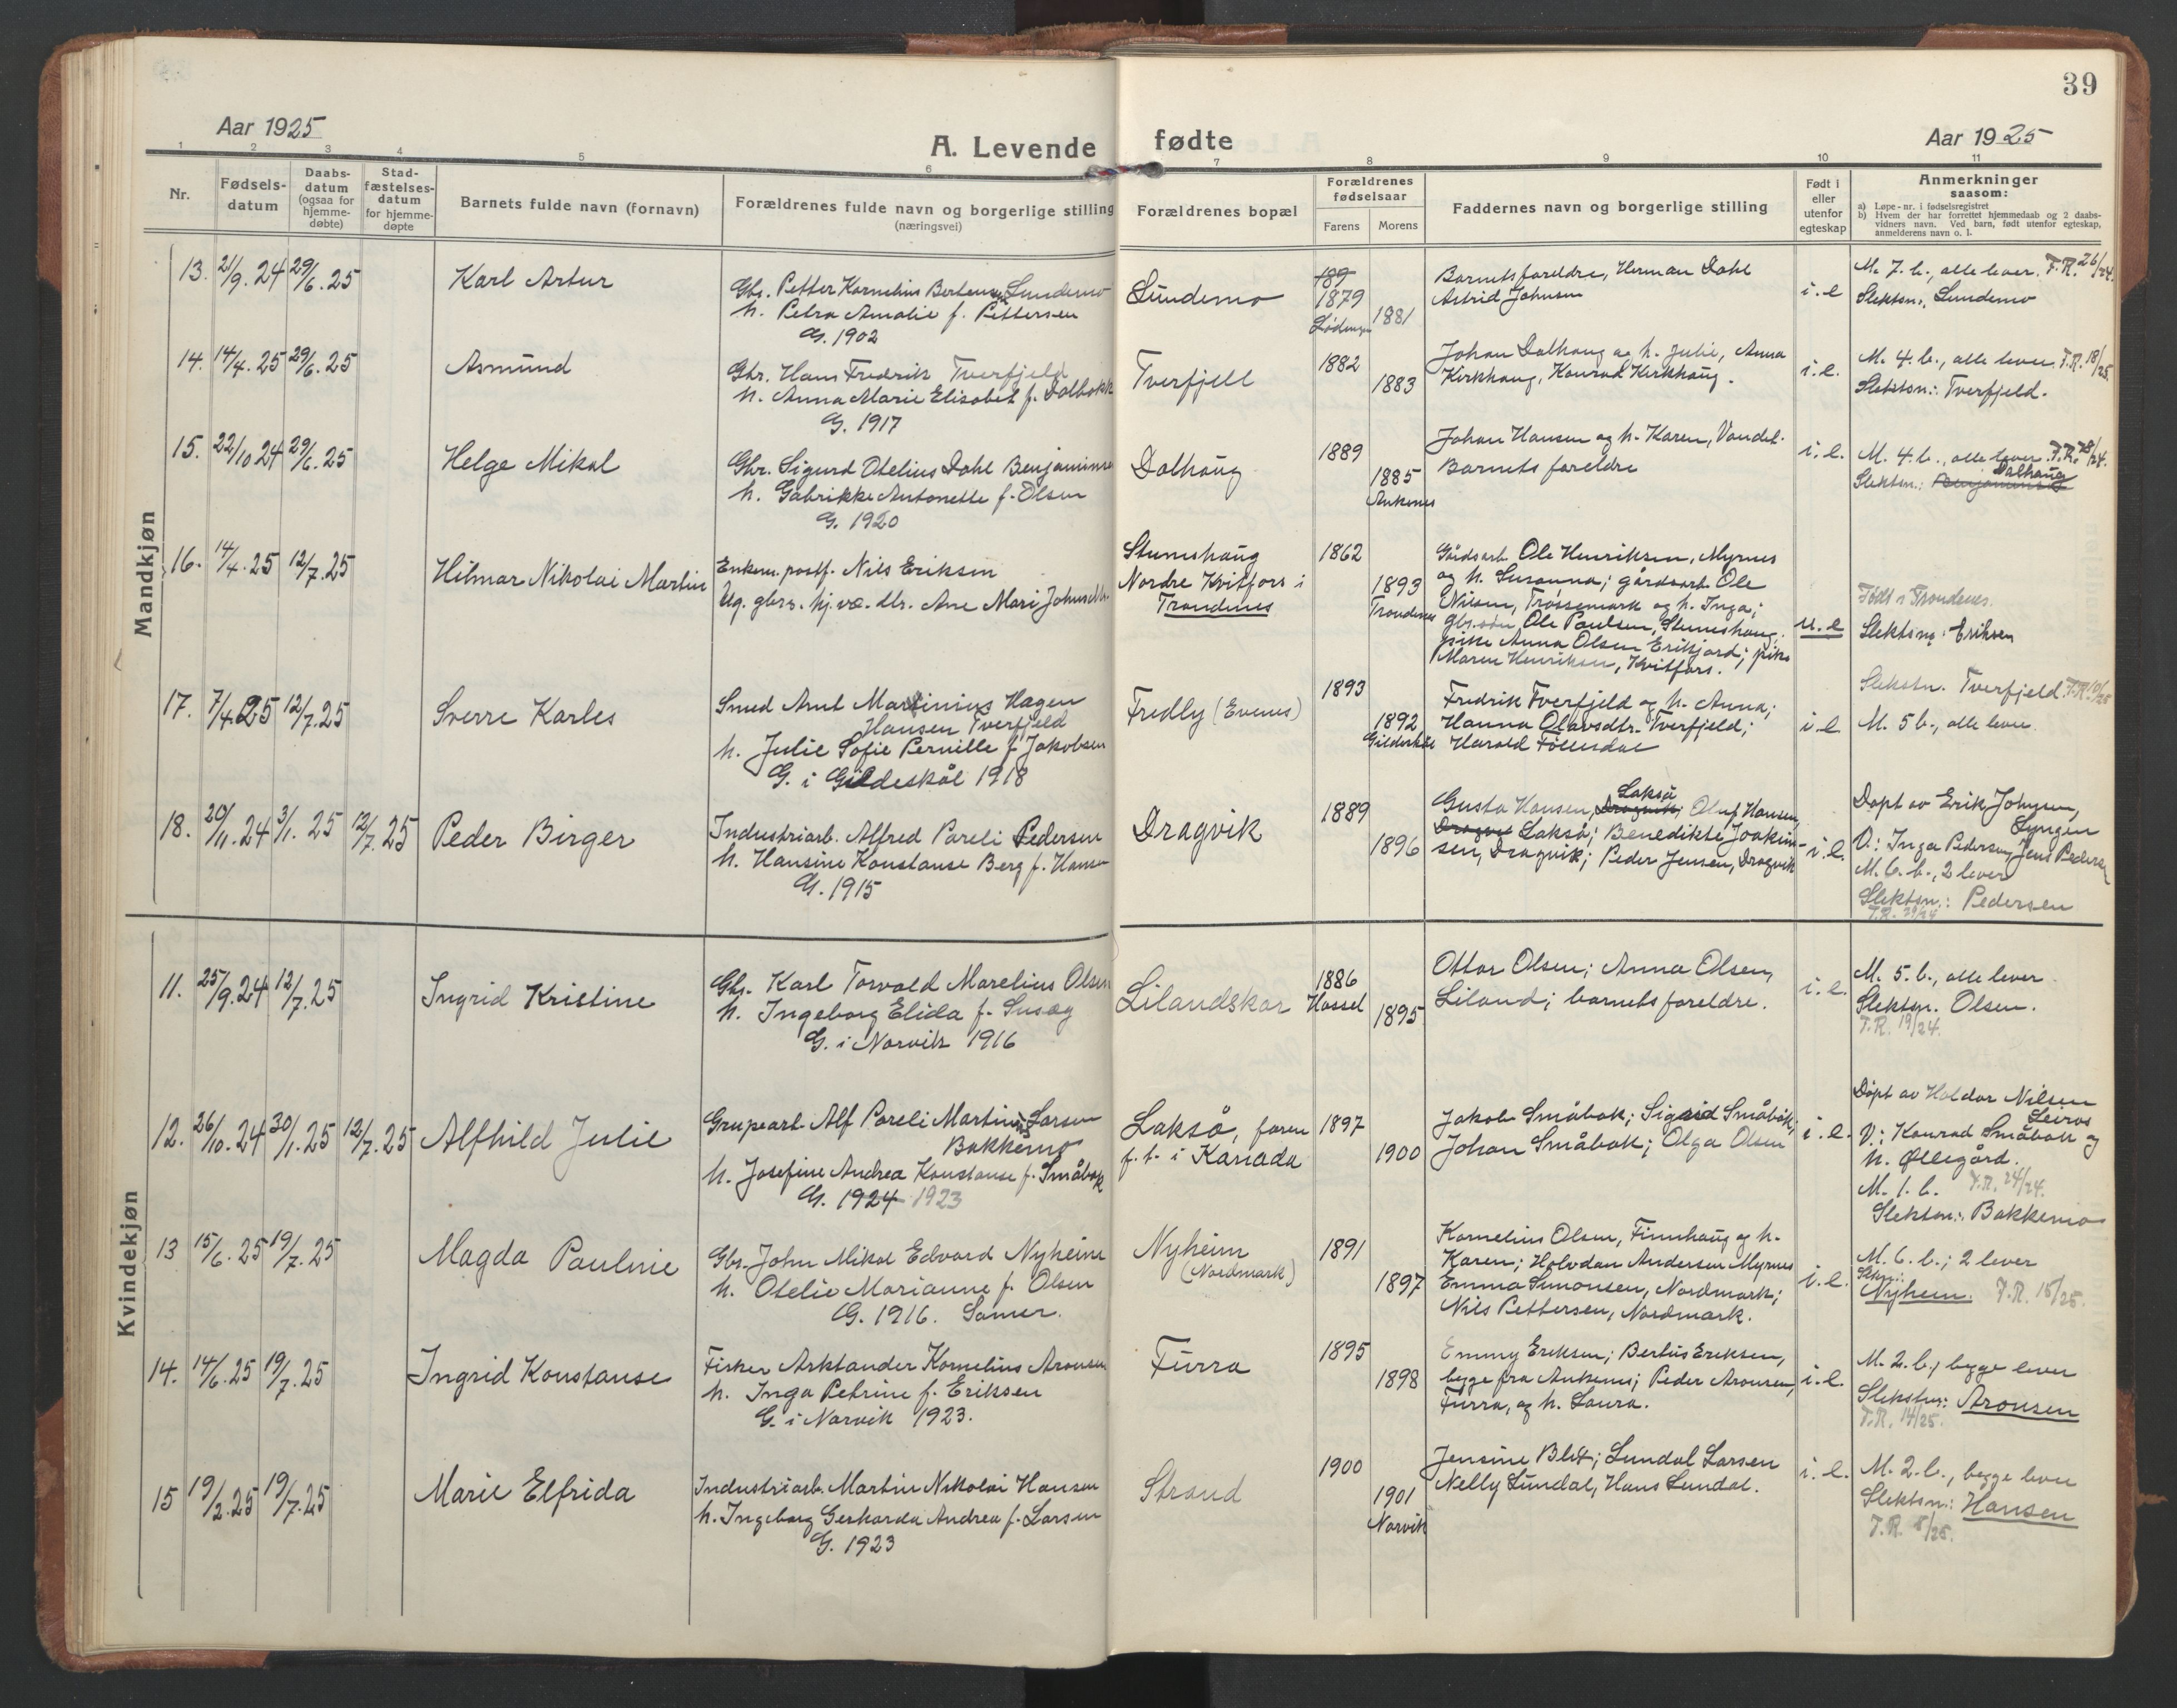 39
Aar 1925
A. Levende fødte
Aar 1925
1 2 3 4 5 6 7 8 9 10 11
Nr.
Fødsels-
datum
Daabs-
datum
(ogsaa for
hjemme-
døbte)
Stad-
fæstelses-
datum
for hjemme-
døpte
Barnets fulde navn (fornavn)
Forældrenes fulde navn og borgerlige stilling
(næringsvei)
Forældrenes bopæl
Forældrenes
fødselsaar
Farens Morens
Faddernes navn og borgerlige stilling
Født i
eller
utenfor
egteskap
Anmerkninger
saasom:
a) Løpe-nr. i fødselsregistret
b) Hvem der har forrettet hjemmedaab og 2 daabs-
vidners navn. Ved barn, født utenfor egteskap,
anmelderens navn o. l.
Mandkjøn
13. 21/9.24 29/6.25
Karl Artur
Gbr. Petter Kornelius Bertensen Lundemo
h. Petra Amalie f. Pettersen
G. 1902
Lundemo
189
1879
Lødingen
1881
Barnets foreldre, Herman Dahl
Astrid Johnsen
i.e
M. 7. b., alle lever. F.R. 26/24.
Slektsn.: Lundemo
14. 14/4.25 29/6.25
Asmund
Gbr. Hans Fredrik Tverfjeld
h. Anna Marie Elisabet f. Dalbakk
G. 1917
Tverfjell
1882
1883
Johan Dalhaug og h. Julie, Anna
Kirkhaug, Konrad Kirkhaug.
i.e.
M. 4. b., alle lever. F.R. 18/25.
Slektsn.: Tverfjeld.
15. 22/10 24 29/6.25
Helge Mikal
Gbr. Sigurd Otelius Dahl Benjaminsen
h. Gabrikke Antonette f. Olsen
G. 1920
Dalhaug
1889
1885
Ankenes
Johan Hansen og h. Karen, Vandel.
Barnets foreldre
i.e.
M. 4. b., alle lever. F.R. 28/24.
Dalhaug
Slektsn.: Benjaminsen
16. 14/4.25 12/7.25
Hilmar Nikolai Martin
Enkem. postf. Nils Eriksen
Ug. gbrs. hj. væ. dtr. Ane Mari Johnsdtr.
Stuneshaug
Nordre Kvitfors i
Trondenes
1862
1893
Trondenes
Gårdsarb. Ole Henriksen, Myrnes
og h. Susanna; gårdsarb. Ole
Nilsen, Trøssemark og h. Inga;
gbr.søn Ole Paulsen, Stuneshaug;
pike Anna Olsen Erikjord; pike
Maren Henriksen, Kvitfors.
u.e
Født i Trondenes.
Slektsn.: Eriksen
17. 7/4.25 12/7.25
Sverre Karles
Smed Arnt Martinius Hagen
Hansen Tverfjeld
h. Julie Sofie Pernille f. Jakobsen
G. i Gildeskål 1918
Fredly (Evenes)
1893
1892
Gildeskål
Fredrik Tverfjeld og h. Anna;
Hanna Olavsdtr. Tverfjeld;
Harald Föllesdal
i.e
Slektsn. Tverfjeld. F.R. 10/25
M. 5 b., alle lever.
18. 20/11.24 3/1.25 12/7.25
Peder Birger
Industriarb. Alfred Pareli Pedersen
h. Hansine Konstanse Berg f. Hansen
G. 1915
Dragvik
1889
1896
Lakså
Gusta Hansen, Dragvik; Oluf Hansen,
Dragvik Lakså; Benedikte Joakim-
sen, Dragvik; Peder Jensen, Dragvik
i.e.
Døpt av Erik Johnsen,
Lyngen
V.: Inga Pedersen, Jens Pedersen
M. 6. b., 2 lever
Slektsn.: Pedersen
F.R. 29/24
Kvindekjøn
11. 25/9.24 12/7.25
Ingrid Kristine
Gbr. Karl Torvald Marelius Olsen
h. Ingeborg Elida f. Susæg
G. i Narvik 1916
Lilandskar
1886
Hassel
1895
Ottar Olsen; Anna Olsen,
Liland; barnets foreldre.
i.e.
M. 5. b., alle lever
Slektsn. Olsen.
F.R. 19/24.
12. 26/10.24 30/1.25 12/7.25
Alfhild Julie
Grupearb. Alf Pareli Martinius Larsen
Bakkemo
h. Josefine Andrea Konstanse f. Småbak
G. 1924 1923
Lakså, faren
f. t. i Kanada
1897
1900
Jakob Småbak; Sigrid Småbak;
Johan Småbak; Olga Olsen
i.e.
Döpt av Haldor Nilsen
Leiros
V.: Konrad Småbak og
h. Øllegård.
M. 1. b. F.R. 24/24.
Slektsn.: Bakkemo
13 15/6.25 19/7.25
Magda Pauline
Gbr. John Mikal Edvard Nyheim
h. Otelie Marianne f. Olsen
G. 1916. Samer.
Nyheim
(Nordmark)
1891
1897
Kornelius Olsen, Finnhaug og h.
Karen; Halvdan Andersen Myrnes
Emma Simonsen, Nordmark;
Nils Pettersen, Nordmark.
i.e.
M. 6. b.; 2 lever
Slktsn.:
Nyheim. F.R. 15/25.
14. 14/6.25 19/7.25
Ingrid Konstanse
Fisker Arktander Kornelius Aronsen
h. Inga Petrine f. Eriksen
G. i Narvik 1923.
Furra
1895
1898
Emmy Eriksen; Bertus Eriksen,
begge fra Ankenes; Peder Aronsen,
Furra, og h. Laura.
i.e.
M. 2. b., begge lever
Slektsn.: Aronsen
F.R. 14/25.
15 19/2.25 19/7.25
Marie Elfrida
Industriarb. Martin Nikolai Hansen
h. Ingeborg Gerharda Andrea f. Larsen
G. 1923
Strand
1900
1901
Narvik
Jensine Blix; Lundal Larsen
Nelly Lundal, Hans Lundal.
i.e.
M. 2. b., begge lever
Slektsn.: Hansen
F.R. 5/25.